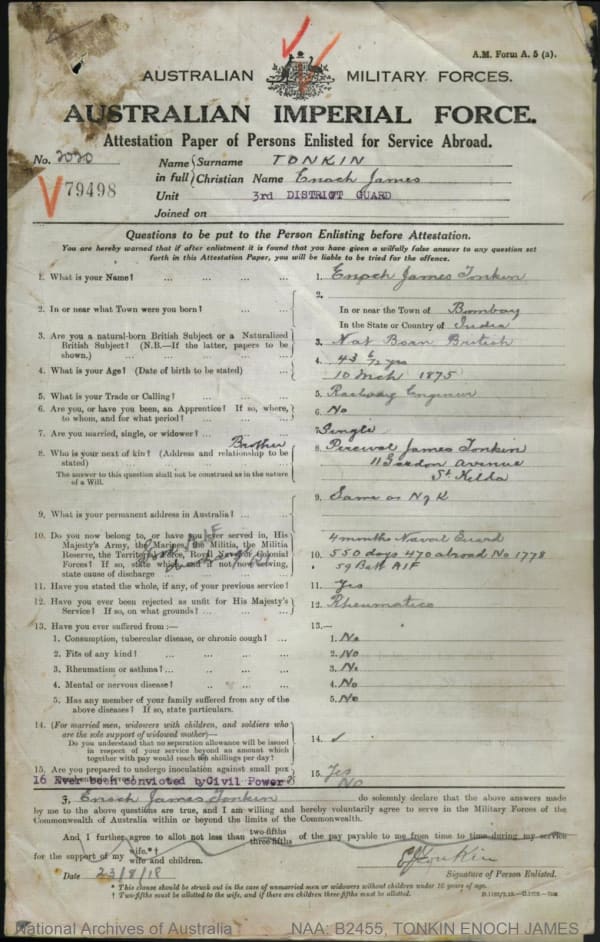 A.M. Form A. 5 (a).
AUSTRALIAN MILITARY FORCES.
AUSTRALIAN IMPERIAL FORCE.
Attestation Paper of Persons Enlisted for Service Abroad.
No. 2020
Name in full Surname TONKIN
Christian Name Enoch James
V79498
Unit 3rd DISTRICT GUARD
Joined on
Questions to be put to the Person Enlisting before Attestation.
You are hereby warned that if after enlistment it is found that you have given a wilfully false answer to any question set
forth in this Attestation Paper, you will be liable to be tried for the offence.
1. What is your Name? ... ... ... ... 1. Enoch James Tonkin
2. In or near what Town were you born? ... ... 2. In or near the Town of Bombay
In the State or Country of India
3. Are you a natural-born British Subject or a Naturalized
British Subject? (N.B.—If the latter, papers to be
shown.) ... ... ... 3. Nat Born British
4. What is your Age? (Date of birth to be stated) ... 4. 43 6/12 yrs
10 Mch 1875
5. What is your Trade or Calling? ... ... 5. Engineer
6. Are you, or have you been, an Apprentice? If so, where,
to whom, and for what period? ... ... 6. No
7. Are you married, single, or widower? ... ... 7. Single
8. Who is your next of kin? (Address and relationship to be
stated) ... Brother
The answer to this question shall not be construed as in the nature
of a Will.
8. Percival James Tonkin
11 Gordon Avenue
St Kilda
9. What is your permanent address in Australia? ... 9. Same as N of K
10. Do you now belong to, or have you ever served in, His
Majesty's Army, the Marines, the Militia, the Militia
Reserve, the Territorial Force, Royal Navy or Colonial
Forces? If so, state which, and if not now serving,
state cause of discharge
AIF
4 months Naval Guard
10. 550 days 470 abroad No 1778
59 Batt AIF
11. Have you stated the whole, if any, of your previous service? 11. Yes
12. Have you ever been rejected as unfit for His Majesty's
Service? If so, on what grounds? ... ... 12. Rheumatics
13. Have you ever suffered from:— 13.—
1. Consumption, tubercular disease, or chronic cough? ... 1. No
2. Fits of any kind? ... ... ... 2. No
3. Rheumatism or asthma? ... ... ... 3. No
4. Mental or nervous disease? ... ... ... 4. No
5. Has any member of your family suffered from any of the
above diseases? If so, state particulars. 5. No
14. (For married men, widowers with children, and soldiers who
are the sole support of widowed mother)—
Do you understand that no separation allowance will be issued
in respect of your service beyond an amount which
together with pay would reach ten shillings per day? 14. ✓
15. Are you prepared to undergo inoculation against small pox
15. Yes
16 Ever been convicted by Civil Power? No
I, Enoch James Tonkin do solemnly declare that the above answers made
by me to the above questions are true, and I am willing and hereby voluntarily agree to serve in the Military Forces of the
Commonwealth of Australia within or beyond the limits of the Commonwealth.
And I further agree to allot not less than two-fifths three-fifths of the pay payable to me from time to time during my service
for the support of my wife.*† wife and children.
Date 23/8/18
E J Tonkin
Signature of Person Enlisted.
* This clause should be struck out in the case of unmarried men or widowers without children under 16 years of age.
† Two-fifths must be allotted to the wife, and if there are children three-fifths must be allotted.
National Archives of Australia
NAA: B2455, TONKIN ENOCH JAMES